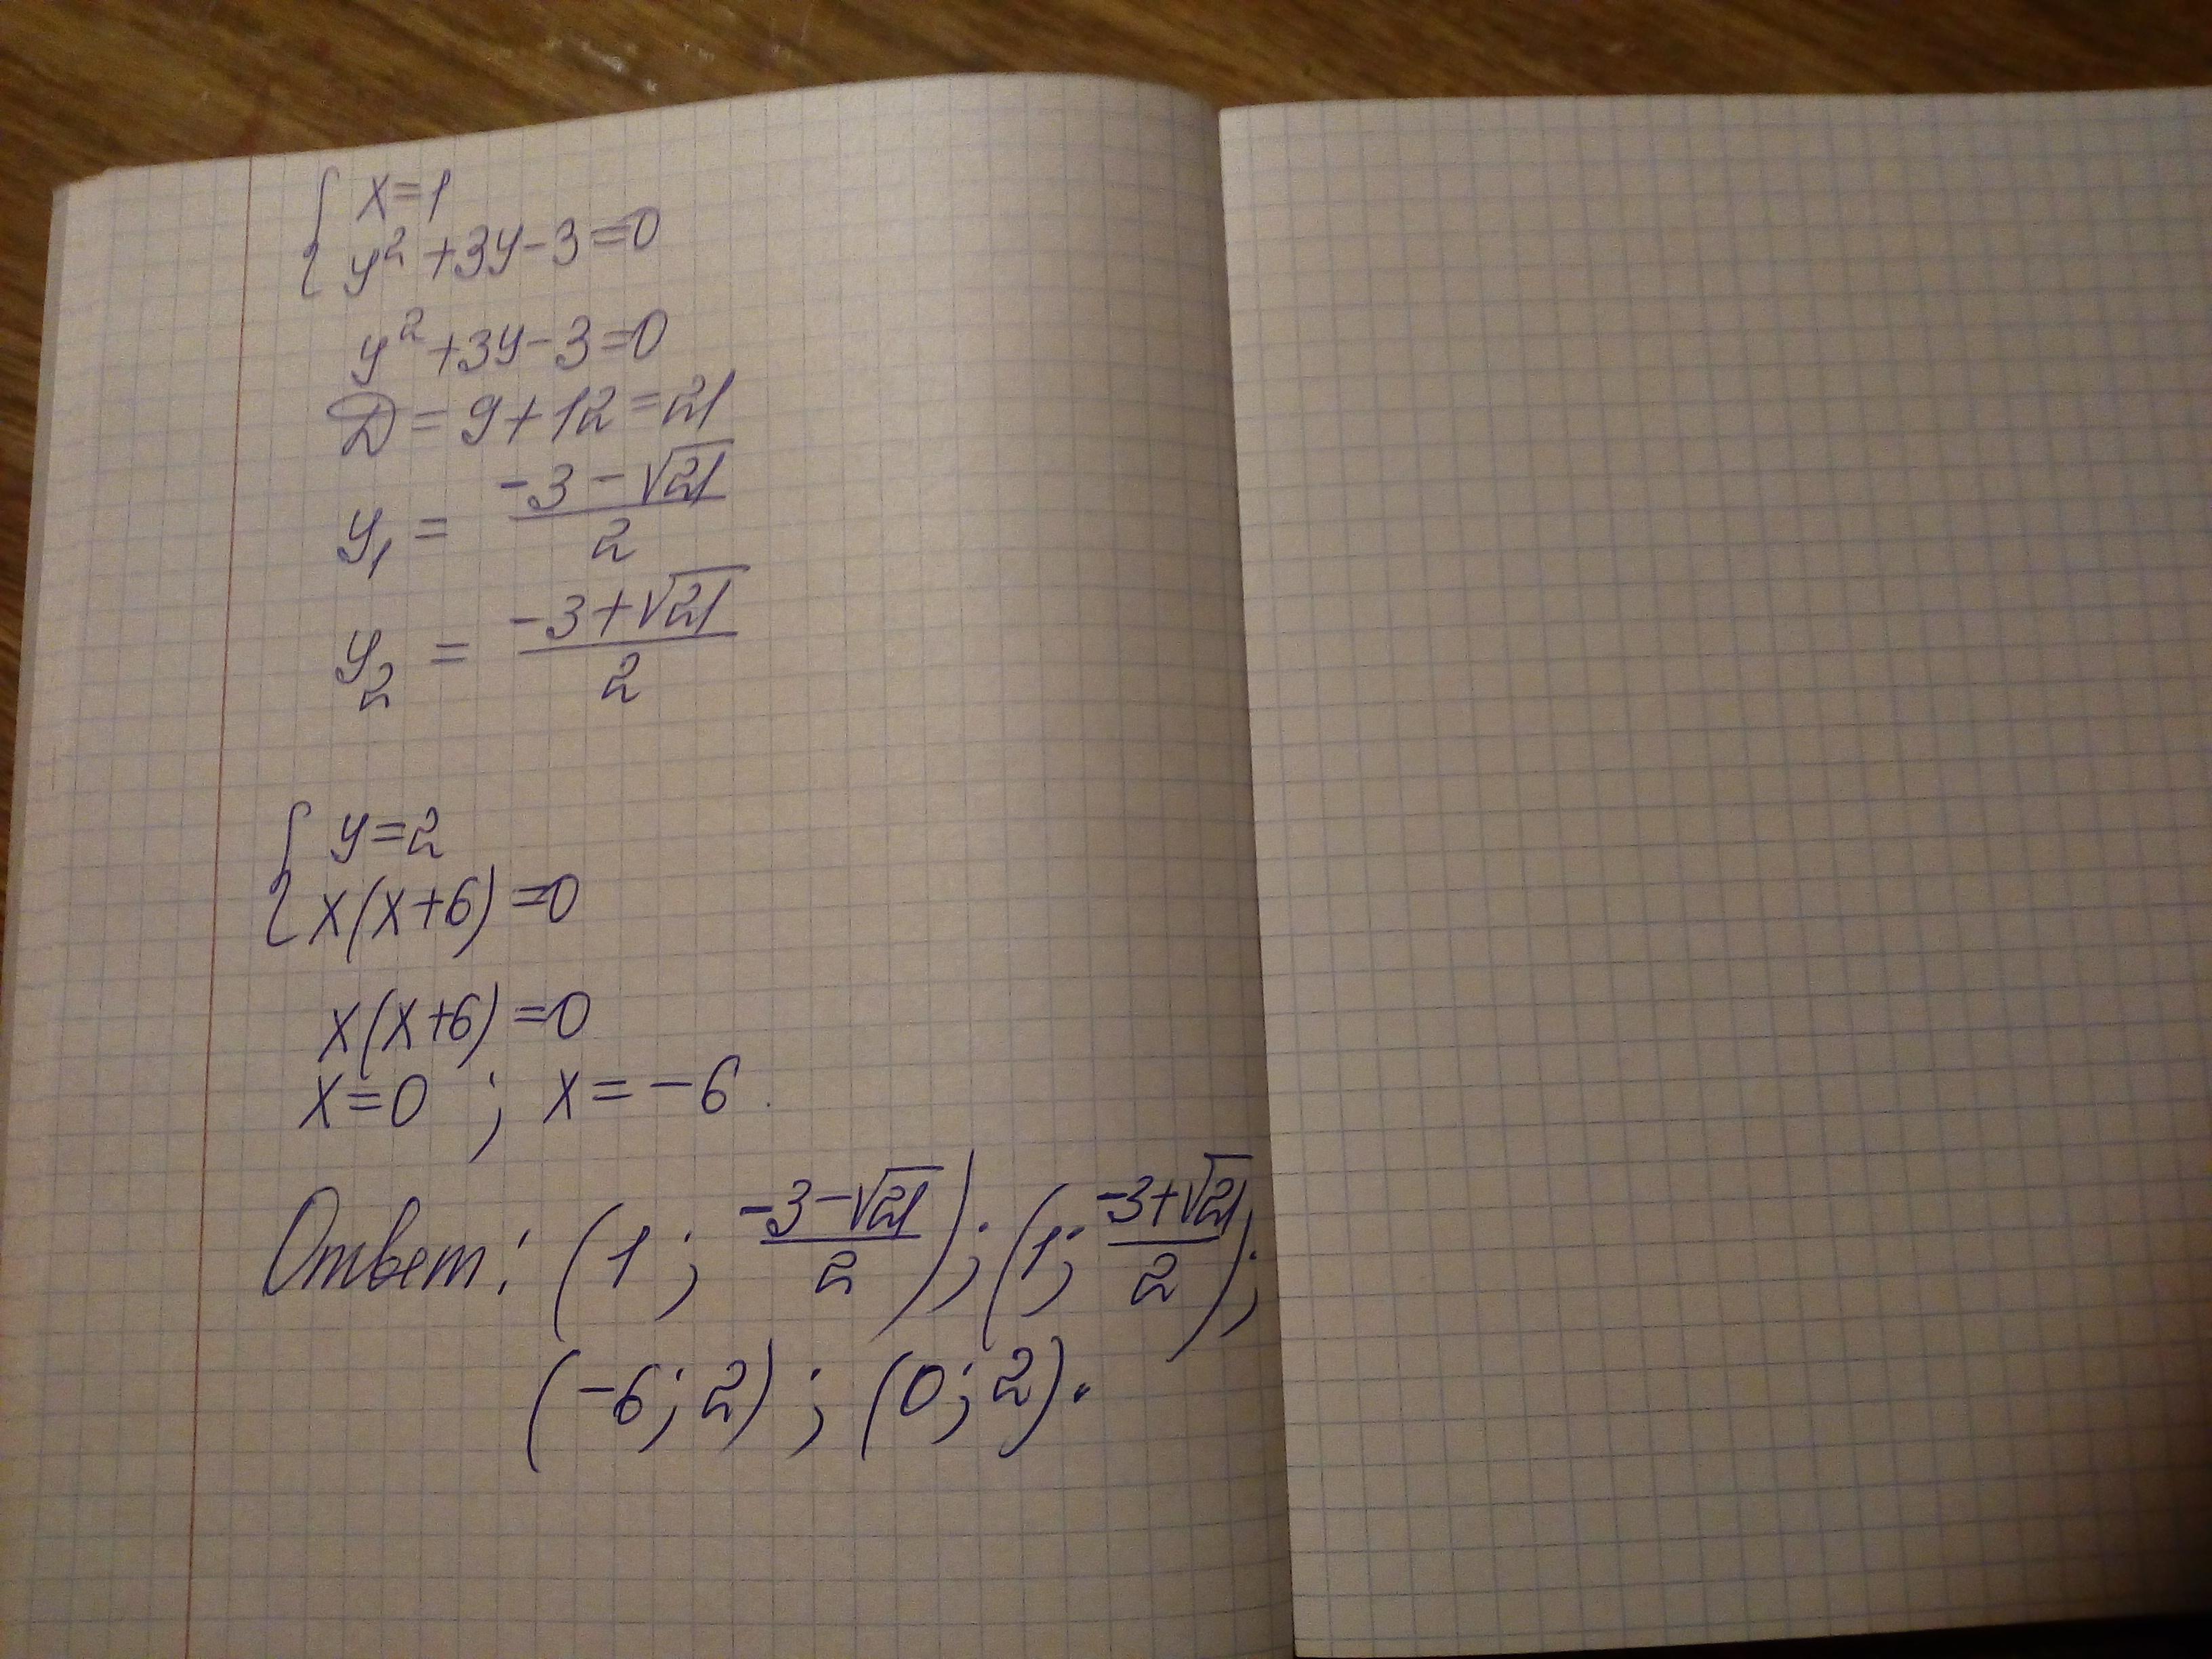 { x=1
y²+3y-3=0
y²+3y-3=0
D=9+12=21
y₁ = (-3-√21)/2
y₂ = (-3+√21)/2
{ y=2
x(x+6)=0
x(x+6)=0
x=0 ; x=-6.
Ответ: (1; (-3-√21)/2); (1; (-3+√21)/2);
(-6; 2); (0; 2).